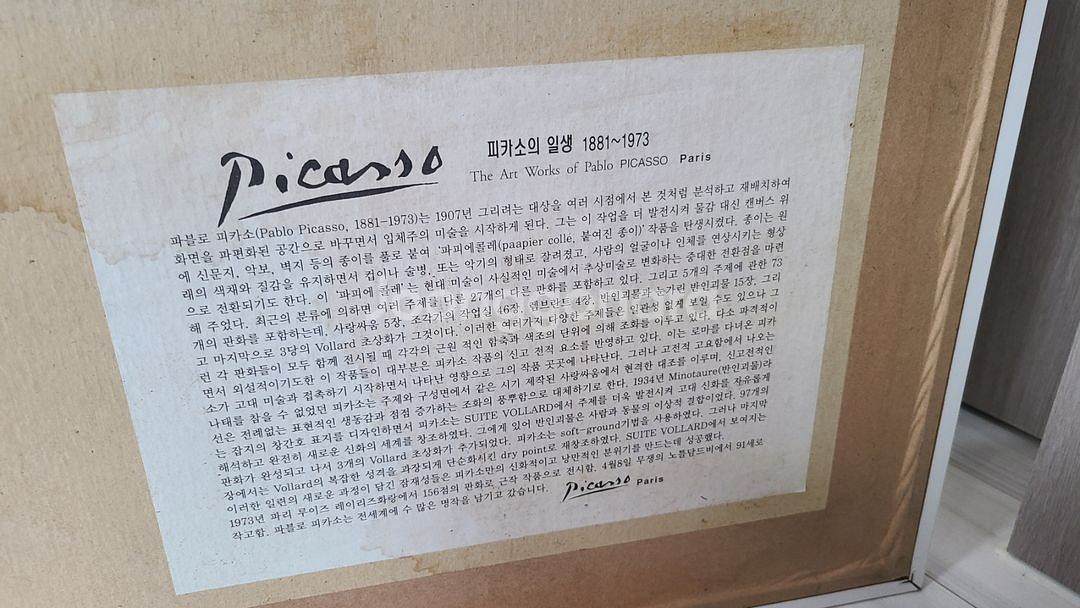 Picasso
피카소의 일생 1881~1973
The Art Works of Pablo PICASSO Paris
파블로 피카소(Pablo Picasso, 1881-1973)는 1907년 그리려는 대상을 여러 시점에서 본 것처럼 분석하고 재배치하여
화면을 파편화된 공간으로 바꾸면서 입체주의 미술을 시작하게 된다. 그는 이 작업을 더 발전시켜 물감 대신 캔버스 위
에 신문지, 악보, 벽지 등의 종이를 풀로 붙여 '파피에콜레(paapier collé, 붙여진 종이)' 작품을 탄생시켰다. 종이는 원
래의 색채와 질감을 유지하면서 컵이나 술병, 또는 악기의 형태로 잘려졌고, 사람의 얼굴이나 인체를 연상시키는 형상
으로 전환되기도 한다. 이 '파피에 콜레'는 현대 미술이 사실적인 미술에서 추상미술로 변화하는 중대한 전환점을 마련
해 주었다. 최근의 분류에 의하면 여러 주제를 다룬 27개의 다른 판화를 포함하고 있다. 그리고 5개의 주제에 관한 73
개의 판화를 포함하는데, 사랑싸움 5장, 조각가의 작업실 46장, 렘브란트 4장, 반인괴물과 눈가린 반인괴물 15장, 그리
고 마지막으로 3당의 Vollard 초상화가 그것이다. 이러한 여러가지 다양한 주제들은 일관성 없게 보일 수도 있으나 그
런 각 판화들이 모두 함께 전시될 때 각각의 근원 적인 함축과 색조의 단위에 의해 조화를 이루고 있다. 다소 파격적이
면서 외설적이기도한 이 작품들이 대부분은 피카소 작품의 신고 전적 요소를 반영하고 있다. 이는 로마를 다녀온 피카
소가 고대 미술과 접촉하기 시작하면서 나타난 영향으로 그의 작품 곳곳에 나타난다. 그러나 고전적 고요함에서 나오는
나태를 참을 수 없었던 피카소는 주제와 구성면에서 같은 시기 제작된 사랑싸움에서 현격한 대조를 이루며, 신고전적인
선은 전례없는 표현적인 생동감과 점점 증가하는 조화의 풍뿌함으로 대체하기로 한다. 1934년 Minotaure(반인괴물)라
는 잡지의 창간호 표지를 디자인하면서 피카소는 SUITE VOLLARD에서 주제를 더욱 발전시켜 고대 신화를 자유롭게
해석하고 완전히 새로운 신화의 세계를 창조하였다. 그에게 있어 반인괴물은 사람과 동물의 이상적 결합이었다. 97개의
판화가 완성되고 나서 3개의 Vollard 초상화가 추가되었다. 피카소는 soft-ground기법을 사용하였다. 그러나 마지막
장에서는 Vollard의 복잡한 성격을 과장되게 단순화시킨 dry point로 재창조하였다. SUITE VOLLARD에서 보여지는
이러한 일련의 새로운 과정이 담긴 잠재성들은 피카소만의 신화적이고 낭만적인 분위기를 만드는데 성공했다.
1973년 파리 루이즈 레이리즈화랑에서 156점의 판화로 근작 작품으로 전시함. 4월8일 무쟁의 노틀담드비에서 91세로
작고함. 파블로 피카소는 전세계에 수 많은 명작을 남기고 갔습니다.
Picasso Paris